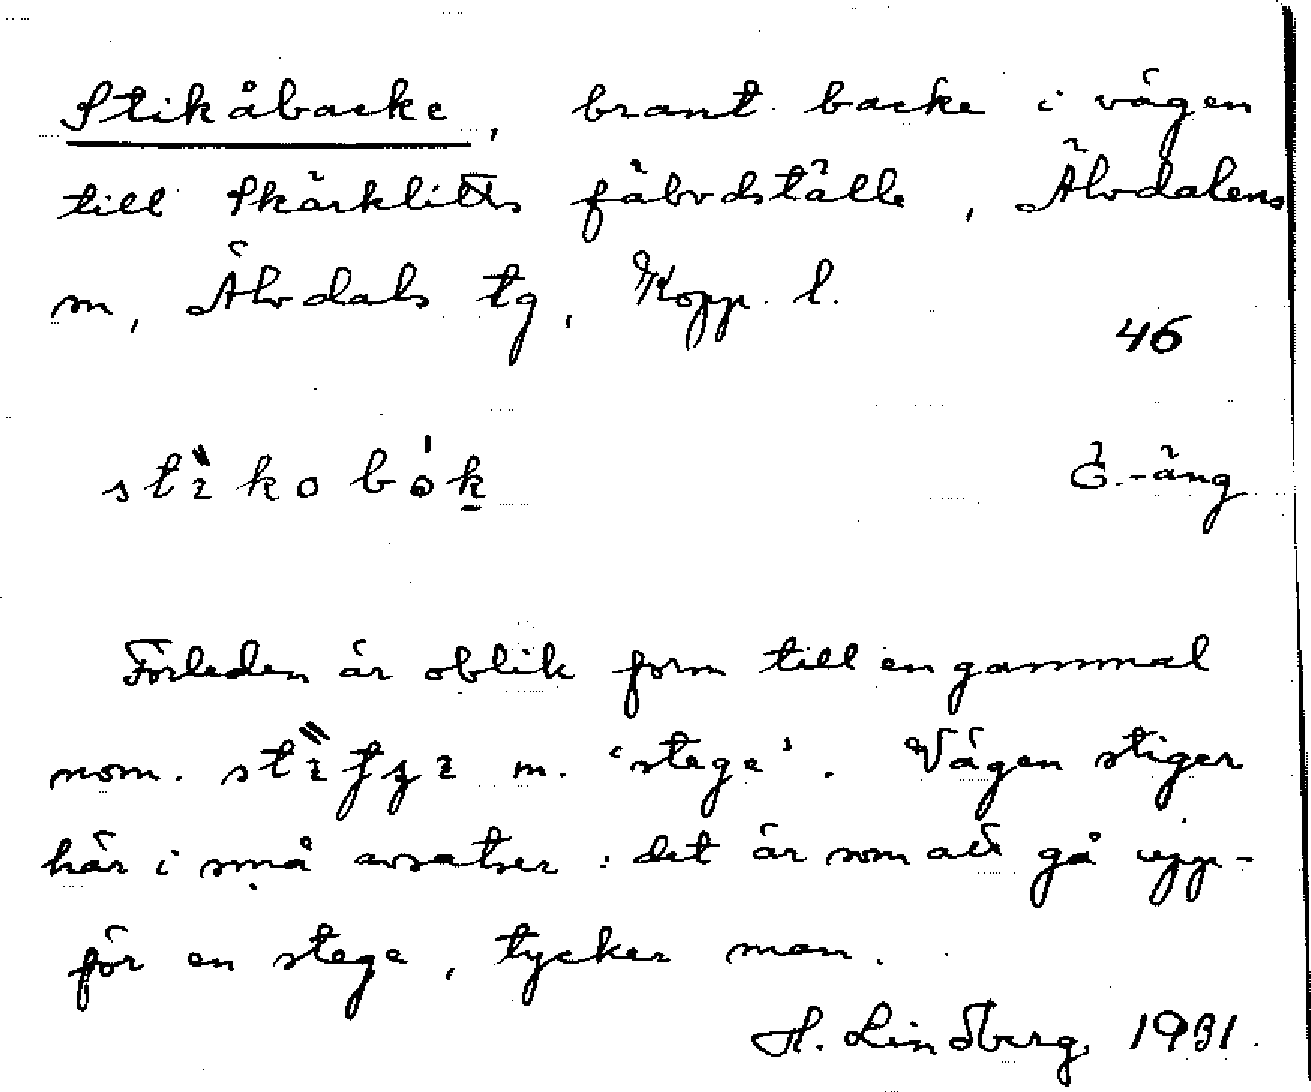 Stikåbacke, brant backe i vägen
till Skärklitts fäbodställe, Älvdalens
sn, Älvdals tg, Kopp. l.
46
Ö.-äng
Förleden är oblik form till en gammal
nom. m. 'stege'. Vägen stiger
här i små avsatser: det är som att gå upp-
för en stege, tycker man.
H. Lindberg 1931.